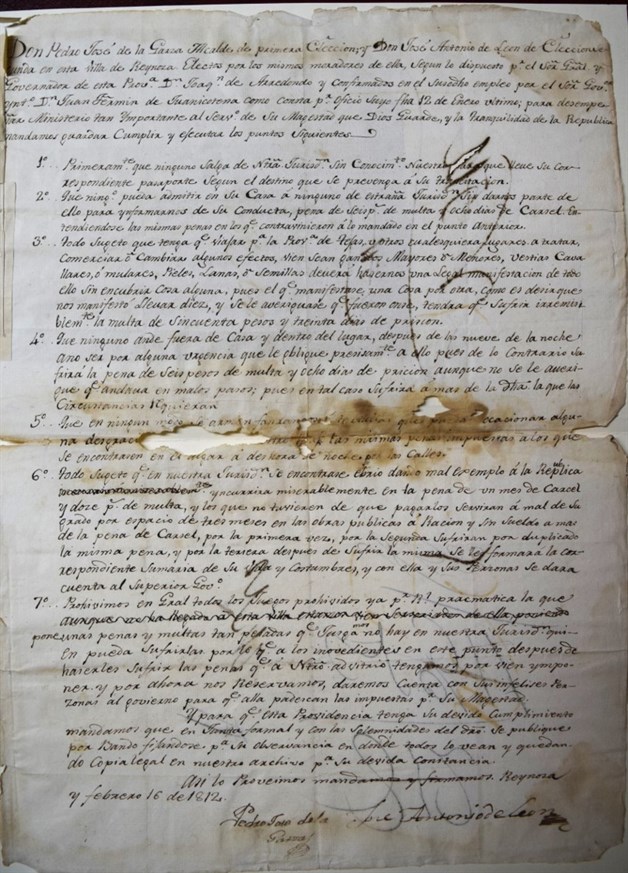 Don Pedro José de la Garza Alcalde de primera Eleccion, y Don José Antonio de Leon de Eleccion segunda
en esta Villa de Reynosa Electos por los mismos moradores de ella, Segun lo dispuesto pr. el Sor. Gral. y
Governador de esta Prova. Dn. Joaqn. de Arredondo y Confirmados en el Susodho empleo por el Sor. Govr.
Dn. Juan Fermin de Juanicotena como consta pr. Oficio Suyo fha 12 de Enero ultimo; para desempe
ñar Ministerio tan Importante al Servo. de Su Magestad que Dios Guarde, y la tranquilidad de la Republica
mandamos guardar Cumplir y executar los puntos Siguientes
1o. Primeramte. que ninguno Salga de Ntra Jurisdn. Sin Conocimto. Nuestro que lleve Su Cor
respondiente pasaporte Segun el destino que Se prevenga á Su
2o. Que ningo. pueda admitir en Su Casa á ninguno de estraña Jurisdn. Sin darnos parte de
ello para ynformarnos de Su Conducta, pena de Seis ps. de multa y ocho dias de Carcel. En
tendiendose las mismas penas en los qe. contravinieron á lo mandado en el punto anterior.
3o. Todo Sugeto que tenga qe. viajar pa. la Prova. de Tejas, u otros cualesquiera lugares. á tratar,
Comerciar ó Cambiar algunos efectos, vien Sean ganados Mayores ó Menores, vestias Cava
llares, ó mulares, Pieles, Lanas, ó Semillas deverá hacernos una Legal manifestacion de todo
ello Sin encubrir Cosa alguna, pues el qe. manifestare, una Cosa por otra, como es decir que
nos manifestó llevar diez, y Se le averiguare qe. fueron once, tendra qe. Sufrir irremisi
blemte. la multa de Sincuenta pesos y treinta dias de prision.
4o. Que ninguno ande fuera de Casa y dentro del lugar, despues de las nueve de la noche
á no ser por alguna urgencia que le oblique presisamte. á ello pues de lo Contrario Su
frirá la pena de Seis pesos de multa y ocho dias de pricion aunque no Se le averi
gue qe. andava en malos pasos; pues en tal caso Sufrirá á mas de la dha. la que las
Circunstancias Requieran
5o. Que en ningun ocacionar algu
na desgracia las mismas penas impuestas á los que
Se encontraren en el á deshora de noche por las Calles.
6o. Todo Sugeto qe. en nuestra Jurisdn. Se encontrase Ebrio dando mal exemplo á la Republica
yncurrira miserablemente en la pena de un mes de Carcel
y doze ps. de multa, y los que no tuvieren de que pagarlos Serviran á mal de Su
grado por espacio de tres meses en las obras publicas á Racion y Sin Sueldo á mas
de la pena de Carcel, por la primera vez, por la Segunda Sufriran por duplicado
la misma pena, y por la tercera despues de Sufrir la misma Se les formará la Cor
respondiente Sumaria de Su Vida y Costumbres, y con ella y Sus Personas Se dara
cuenta al Superior Govo.
7o. Prohivimos en Gral todos los Juegos prohividos ya pr. Rl. pracmatica la que
pone unas penas y multas tan pesadas qe. Juzgamos no hay en nuestra Jurisdn. qui
en pueda Sufrirlas por lo qe. á los inovedientes en este punto despues de
hacerles Sufrir las penas qe. á Ntro. advitrio tengamos por vien ympo
ner y por ahora nos Reservamos, daremos Cuenta con Sus infelises Per
zonas al govierno para qe. alla padescan las impuestas pr. Su Magestad.
Y para qe. esta Providencia tenga Su devido Cumplimiento
mandamos que en Junta formal y con las Solemnidades del dro. Se publique
por Bando fijandose pa. Su observancia en donde todos lo vean y quedan
do Copia legal en nuestro archivo pa. Su devida Constancia
Asi lo Proveimos mandamos y firmamos. Reynosa
y febrero 16 de 1812.
Pedro José de la José Antonio de Leon
Garza